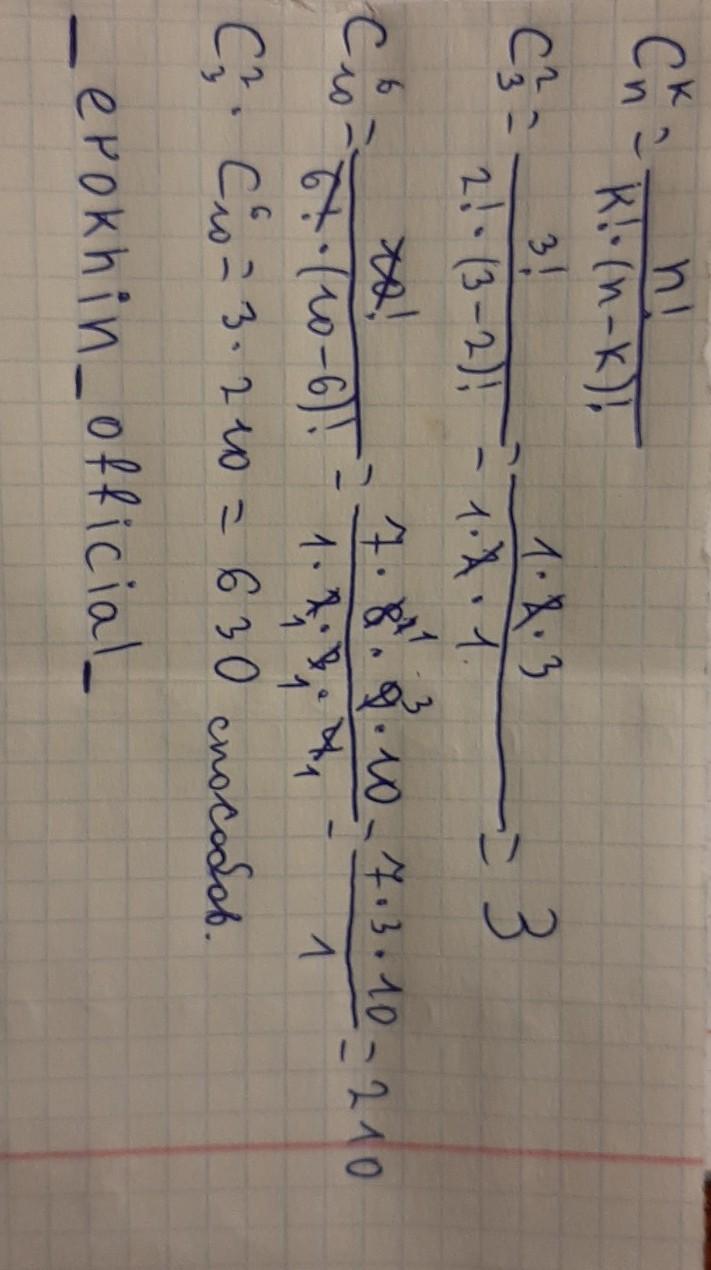 C_n^k = n! / (k! · (n - k)!)
C_3^2 = 3! / (2! · (3 - 2)!) = (1 · 2 · 3) / (1 · 2 · 1) = 3
C_10^6 = 10! / (6! · (10 - 6)!) = (7 · 8^(2 1) · 9^3 · 10) / (1 · 2_1 · 3_1 · 4_1) = (7 · 3 · 10) / 1 = 210
C_3^2 · C_10^6 = 3 · 210 = 630 способов.
_erokhin_official_